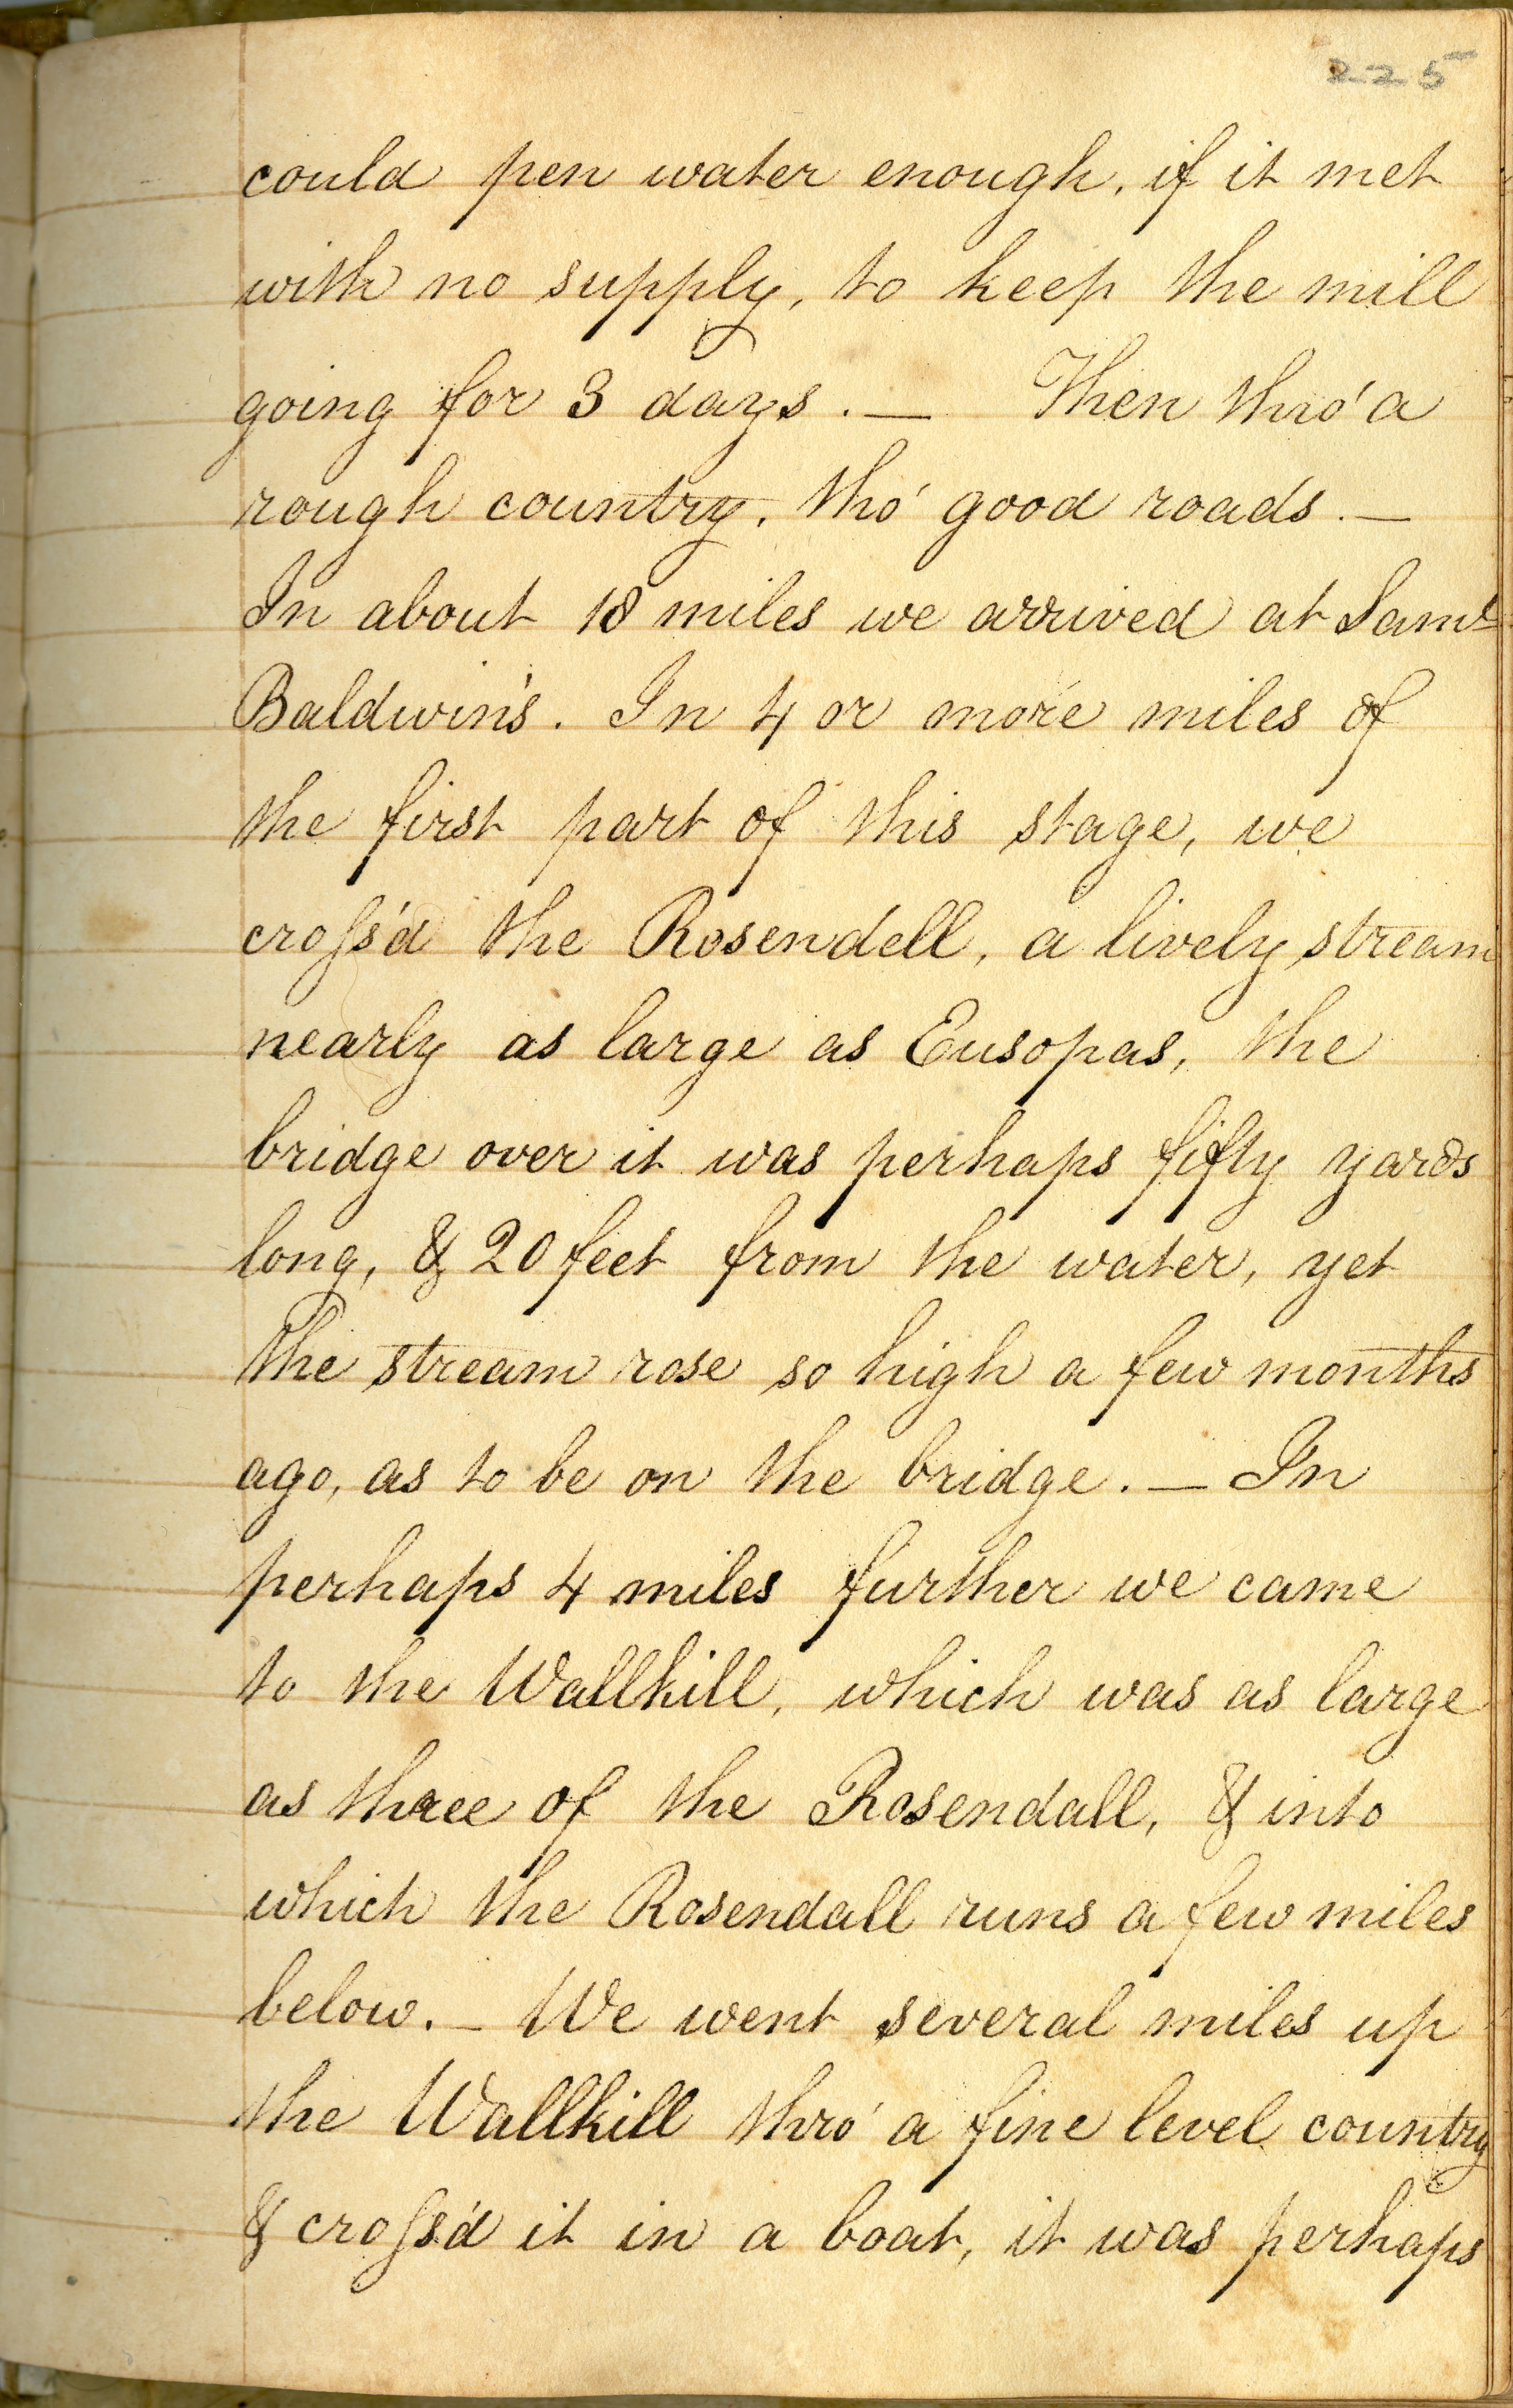 225
could pen water enough, if it met
with no supply, to keep the mill
going for 3 days. — Then thro' a
rough country, tho' good roads. —
In about 18 miles we arrived at Saml
Baldwin's. In 4 or more miles of
the first part of this stage, we
croſs'd the Rosendell, a lively stream
nearly as large as Eusopas, the
bridge over it was perhaps fifty yards
long, & 20 feet from the water, yet
the stream rose so high a few months
ago, as to be on the bridge. — In
perhaps 4 miles further we came
to the Wallkill, which was as large
as three of the Rosendall, & into
which the Rosendall runs a few miles
below. — We went several miles up
the Wallkill thro' a fine level country
& croſs'd it in a boat, it was perhaps